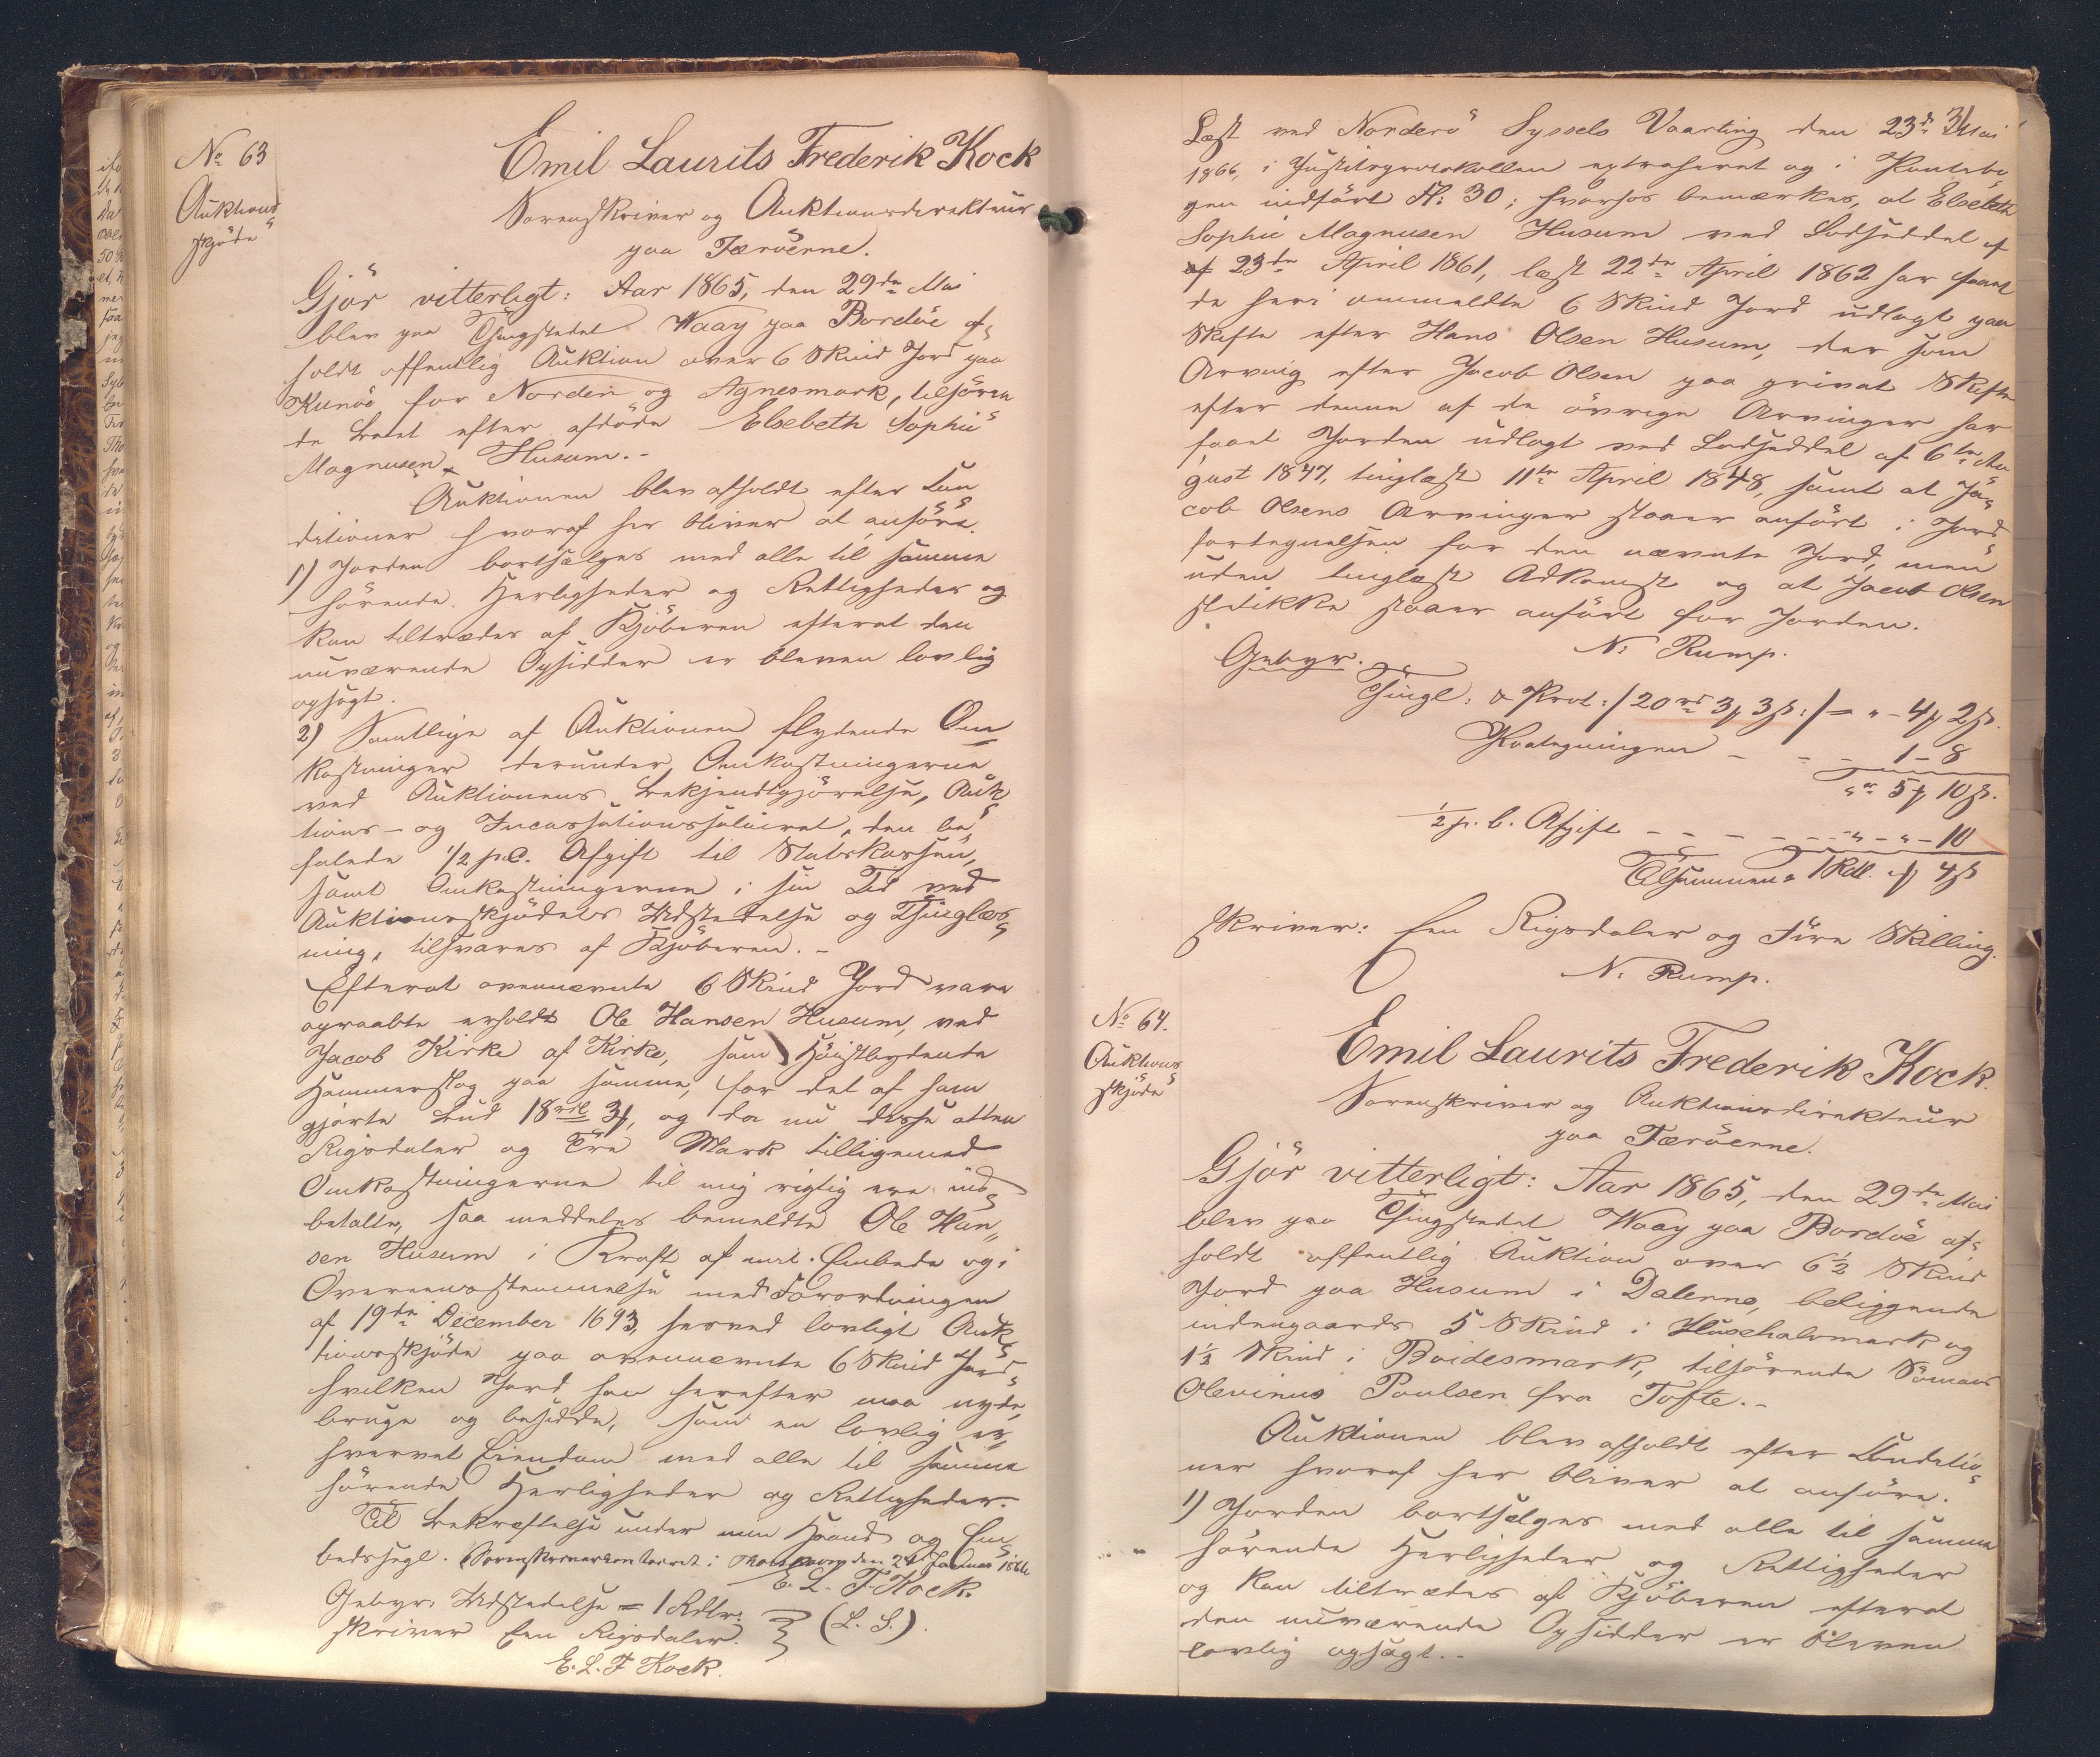 No 63
Auktions
skjöde
Emil Laurits Frederik Kock
Sorenskriver og Auktionsdirekteur
paa Færöerne.
Gjör vitterligt: Aar 1865, den 29de Mai
blev paa Thingstedet Waay paa Bordöe af-
holdt offentlig Auktion over 6 Skind Jord paa
Kunöe for Norden og Agnesmark, tilhören
de Boet efter afdöde Elsebeth Sophie
Magnusen Husum.-
Auktionen blev afholdt efter Con
ditioner hvoraf her bliver at anföre.
1) Jorden bortsælges med alle til samme
hörende Herligheder og Rettigheder og
kan tiltrædes af Kjöberen efterat den
nuværende Opsidder er bleven lovlig
opsagt.
2) Samtlige af Auktionen flydende Om
kostninger derunder Omkostningerne
ved Auktionens Bekjendtgjörelse, Auk
tions- og Incassationssalairet, den be
falede 1/2 p.C. Afgift til Statskassen,
samt Omkostningerne i sin Tid ved
Auktionsskjödets Udstedelse og Thinglæs
ning, tilsvares af Kjöberen.-
Efterat ovennævnte 6 Skind Jord vare
opraabte erholdt Ole Hansen Husum, ved
Jacob Kirke af Kirke, som Höistbydende
Hammerslag paa samme, for det af ham
gjorte Bud 18rdl 3#, og da nu disse atten
Rigsdaler og Tre Mark tilligemed
Omkostningerne til mig rigtig ere ind
betalte, saa meddeles bemeldte Ole Han
sen Husum i Kraft af mit Embede og i
Overeensstemmelse med Forordningen
af 19de December 1693, herved lovligt Auk
tionsskjöde paa ovennævnte 6 Skind Jord
hvilken Jord han herefter maa nyde,
bruge og besidde, som en lovlig er
hvervet Eiendom med alle til samme
hörende Herligheder og Rettigheder.
Til Bekræftelse under min Haand og Em
bedssegl. Sorenskriverkontoiret i Thorshavn den 24 Januar 1866
E. L. F. Kock.
Gebyr. Udstedelse = 1 Rdlr.
skriver Een Rigsdaler. (L. S.).
E. L. F Kock.
31
Læst ved Norderö Syssels Vaarting den 23de Mai
1866, i Justitsprotokollen extraheret og i Pantebo
gen indfört fl: 30; hvorhos bemærkes, at Elsebeth
Sophie Magnusen Husum ved Lodseddel af
af 23de April 1861, læst 22de April 1862 har faaet
de heri ommeldte 6 Skind Jord udlagt paa
Skifte efter Hans Olsen Husum, der som
Arving efter Jacob Olsen paa privat Skifte
efter denne af de övrige Arvinger har
faaet Jorden udlagt ved Lodseddel af 6te Au
gust 1847, tinglæst 11te April 1848, samt at Ja
cob Olsens Arvinger staaer anfört i Jord
fortegnelsen for den nævnte Jord, men
uden tinglæst Adkomst og at Jacob Olsen
sletikke staaer anfört for Jorden.
N: Rump.
Gebyr.
Thingl: & Prot: /20rd 3# 3ß:/ = " - 4# 2ß.
Paategningen - - - 1 - 8
" - 5# 10ß.
1/2 p. C. Afgift - - - - - " - " - 10
Tilsammen = 1 Rdl. " # 4ß
skriver: Een Rigsdaler og Fire Skilling.
N: Rump.
No 64.
Auktions
skjöde
Emil Laurits Frederik Kock.
Sorenskriver og Auktionsdirekteur
paa Færöerne.
Gjör vitterligt: Aar 1865, den 29de Mai
blev paa Thingstedet Waay paa Bordöe af-
holdt offentlig Auktion over 6 1/2 Skind
Jord paa Husum i Dalerne, beliggende
indengaards 5 Skind i Husehalvmark og
1 1/2 Skind i Boidesmark, tilhörende Sömand
Olevinus Poulsen fra Tofte.-
Auktionen blev afholdt efter Conditio
ner hvoraf her bliver at anföre.
1) Jorden bortsælges med alle til samme
hörende Herligheder og Rettigheder
og kan tiltrædes af Kjöberen efterat
den nuværende Opsidder er bleven
lovlig opsagt.-